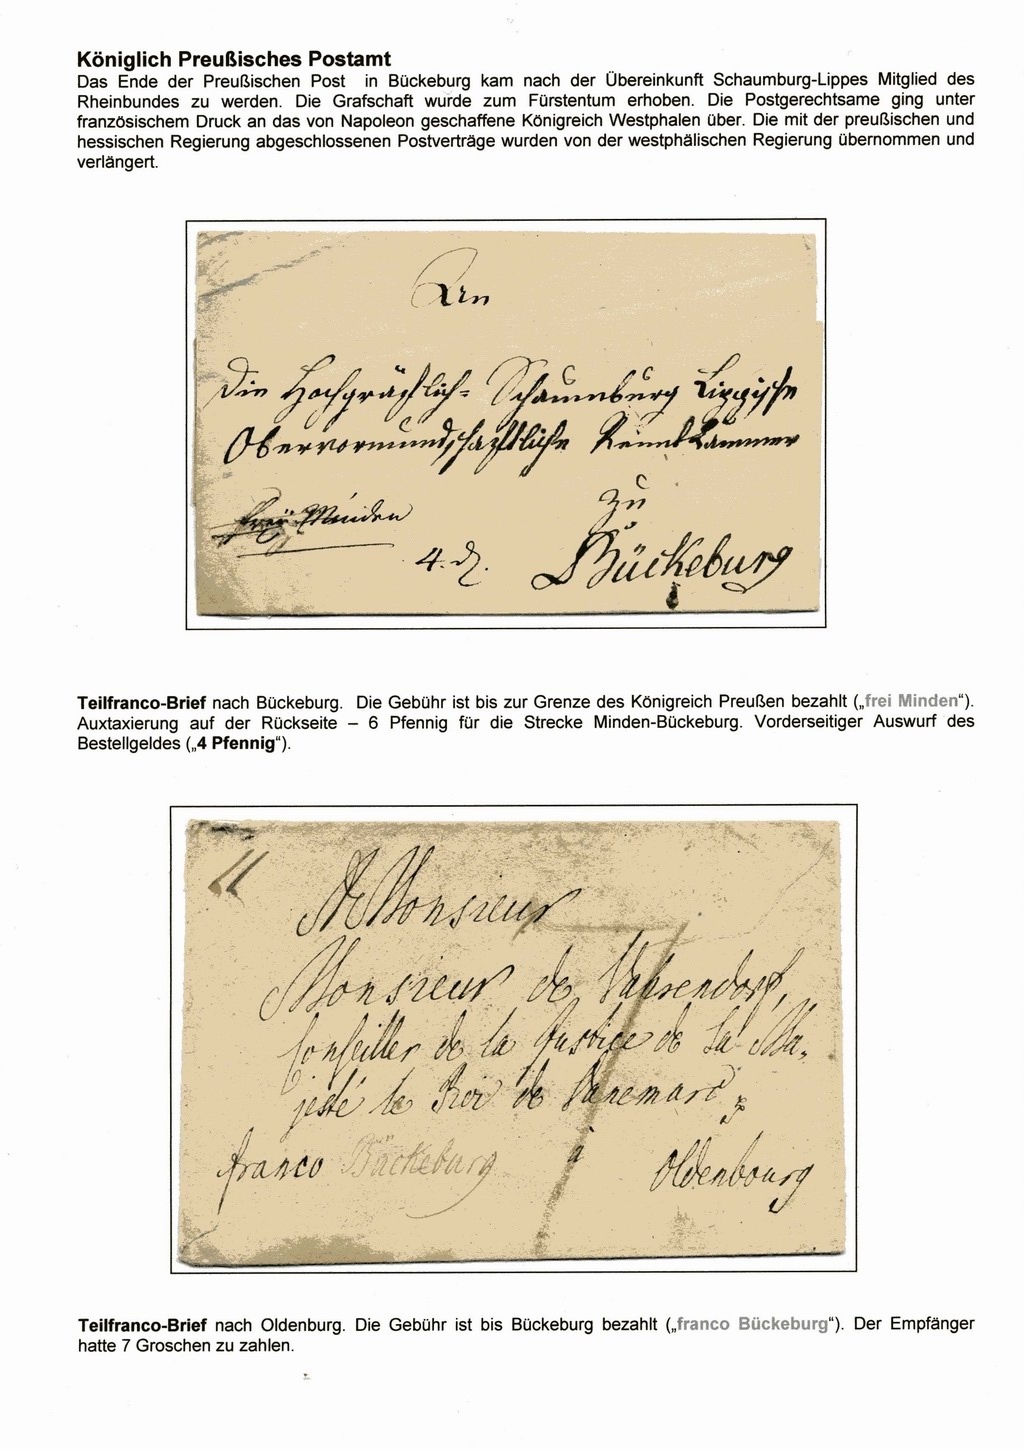 Königlich Preußisches Postamt
Das Ende der Preußischen Post in Bückeburg kam nach der Übereinkunft Schaumburg-Lippes Mitglied des
Rheinbundes zu werden. Die Grafschaft wurde zum Fürstentum erhoben. Die Postgerechtsame ging unter
französischem Druck an das von Napoleon geschaffene Königreich Westphalen über. Die mit der preußischen und
hessischen Regierung abgeschlossenen Postverträge wurden von der westphälischen Regierung übernommen und
verlängert.
An
Die Hochgräflich= Schaumburg Lippische
Obervormundschaftliche Rentkammer
zu
frey Minden
4. d.
Bückeburg
Teilfranco-Brief nach Bückeburg. Die Gebühr ist bis zur Grenze des Königreich Preußen bezahlt („frei Minden“).
Auxtaxierung auf der Rückseite – 6 Pfennig für die Strecke Minden-Bückeburg. Vorderseitiger Auswurf des
Bestellgeldes („4 Pfennig“).
A Monsieur
Monsieur de
Conseiller de la Justice de Sa Ma,
jesté le Roi de Danemarc
à
franco Bückeburg Oldenbourg
Teilfranco-Brief nach Oldenburg. Die Gebühr ist bis Bückeburg bezahlt („franco Bückeburg“). Der Empfänger
hatte 7 Groschen zu zahlen.